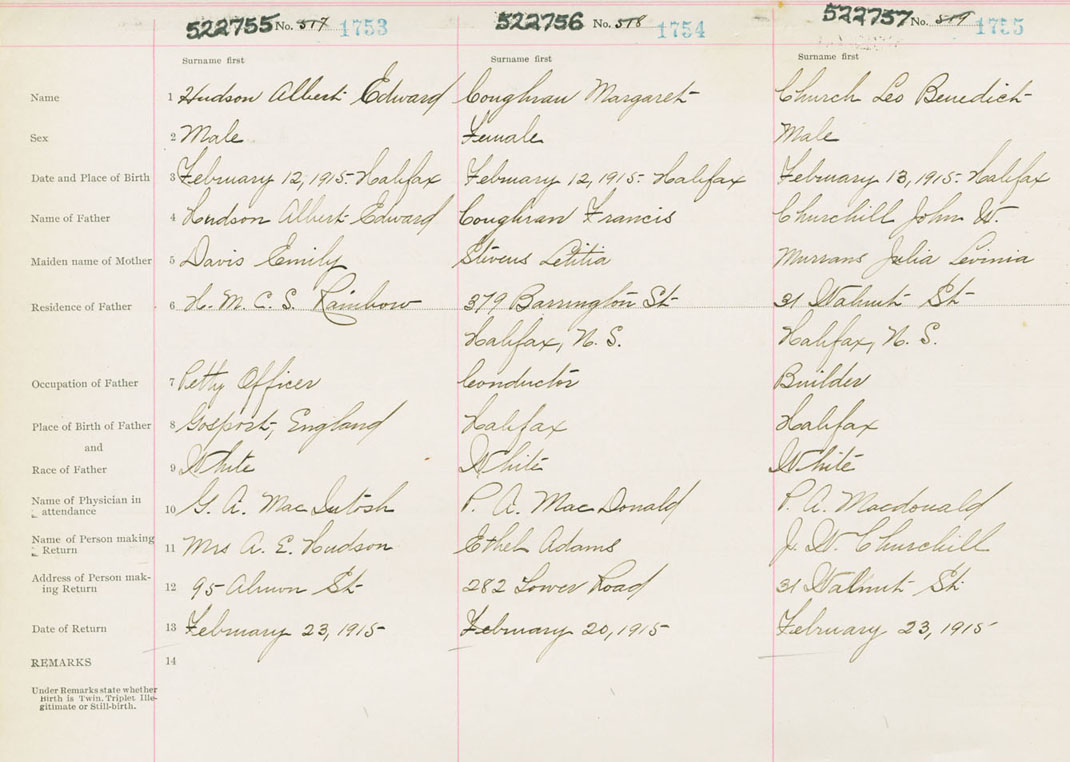 522755 No. 517 1753 522756 No. 518 1754 522757 No. 519 1755
Surname first Surname first Surname first
Name 1 Hudson Albert Edward Coughran Margaret Church Leo Benedict
Sex 2 Male Female Male
Date and Place of Birth 3 February 12, 1915- Halifax February 12, 1915- Halifax February 13, 1915- Halifax
Name of Father 4 Hudson Albert Edward Coughran Francis Churchill John W.
Maiden name of Mother 5 Davis Emily Stivens Letitia Murrans Julia Levinia
Residence of Father 6 H. M. C. S. Rainbow 379 Barrington St 31 Walnut St
Halifax, N. S. Halifax, N. S.
Occupation of Father 7 Petty Officer Conductor Builder
Place of Birth of Father 8 Gosport, England Halifax Halifax
and
Race of Father 9 White White White
Name of Physician in
attendance 10 G. A. MacIntosh P. A. MacDonald P. A. Macdonald
Name of Person making
Return 11 Mrs A. E. Hudson Ethel Adams J. W. Churchill
Address of Person mak-
ing Return 12 95 Almon St 282 Lower Road 31 Walnut St.
Date of Return 13 February 23, 1915- February 20, 1915- February 23, 1915-
REMARKS 14
Under Remarks state whether
Birth is Twin, Triplet Ille-
gitimate or Still-birth.